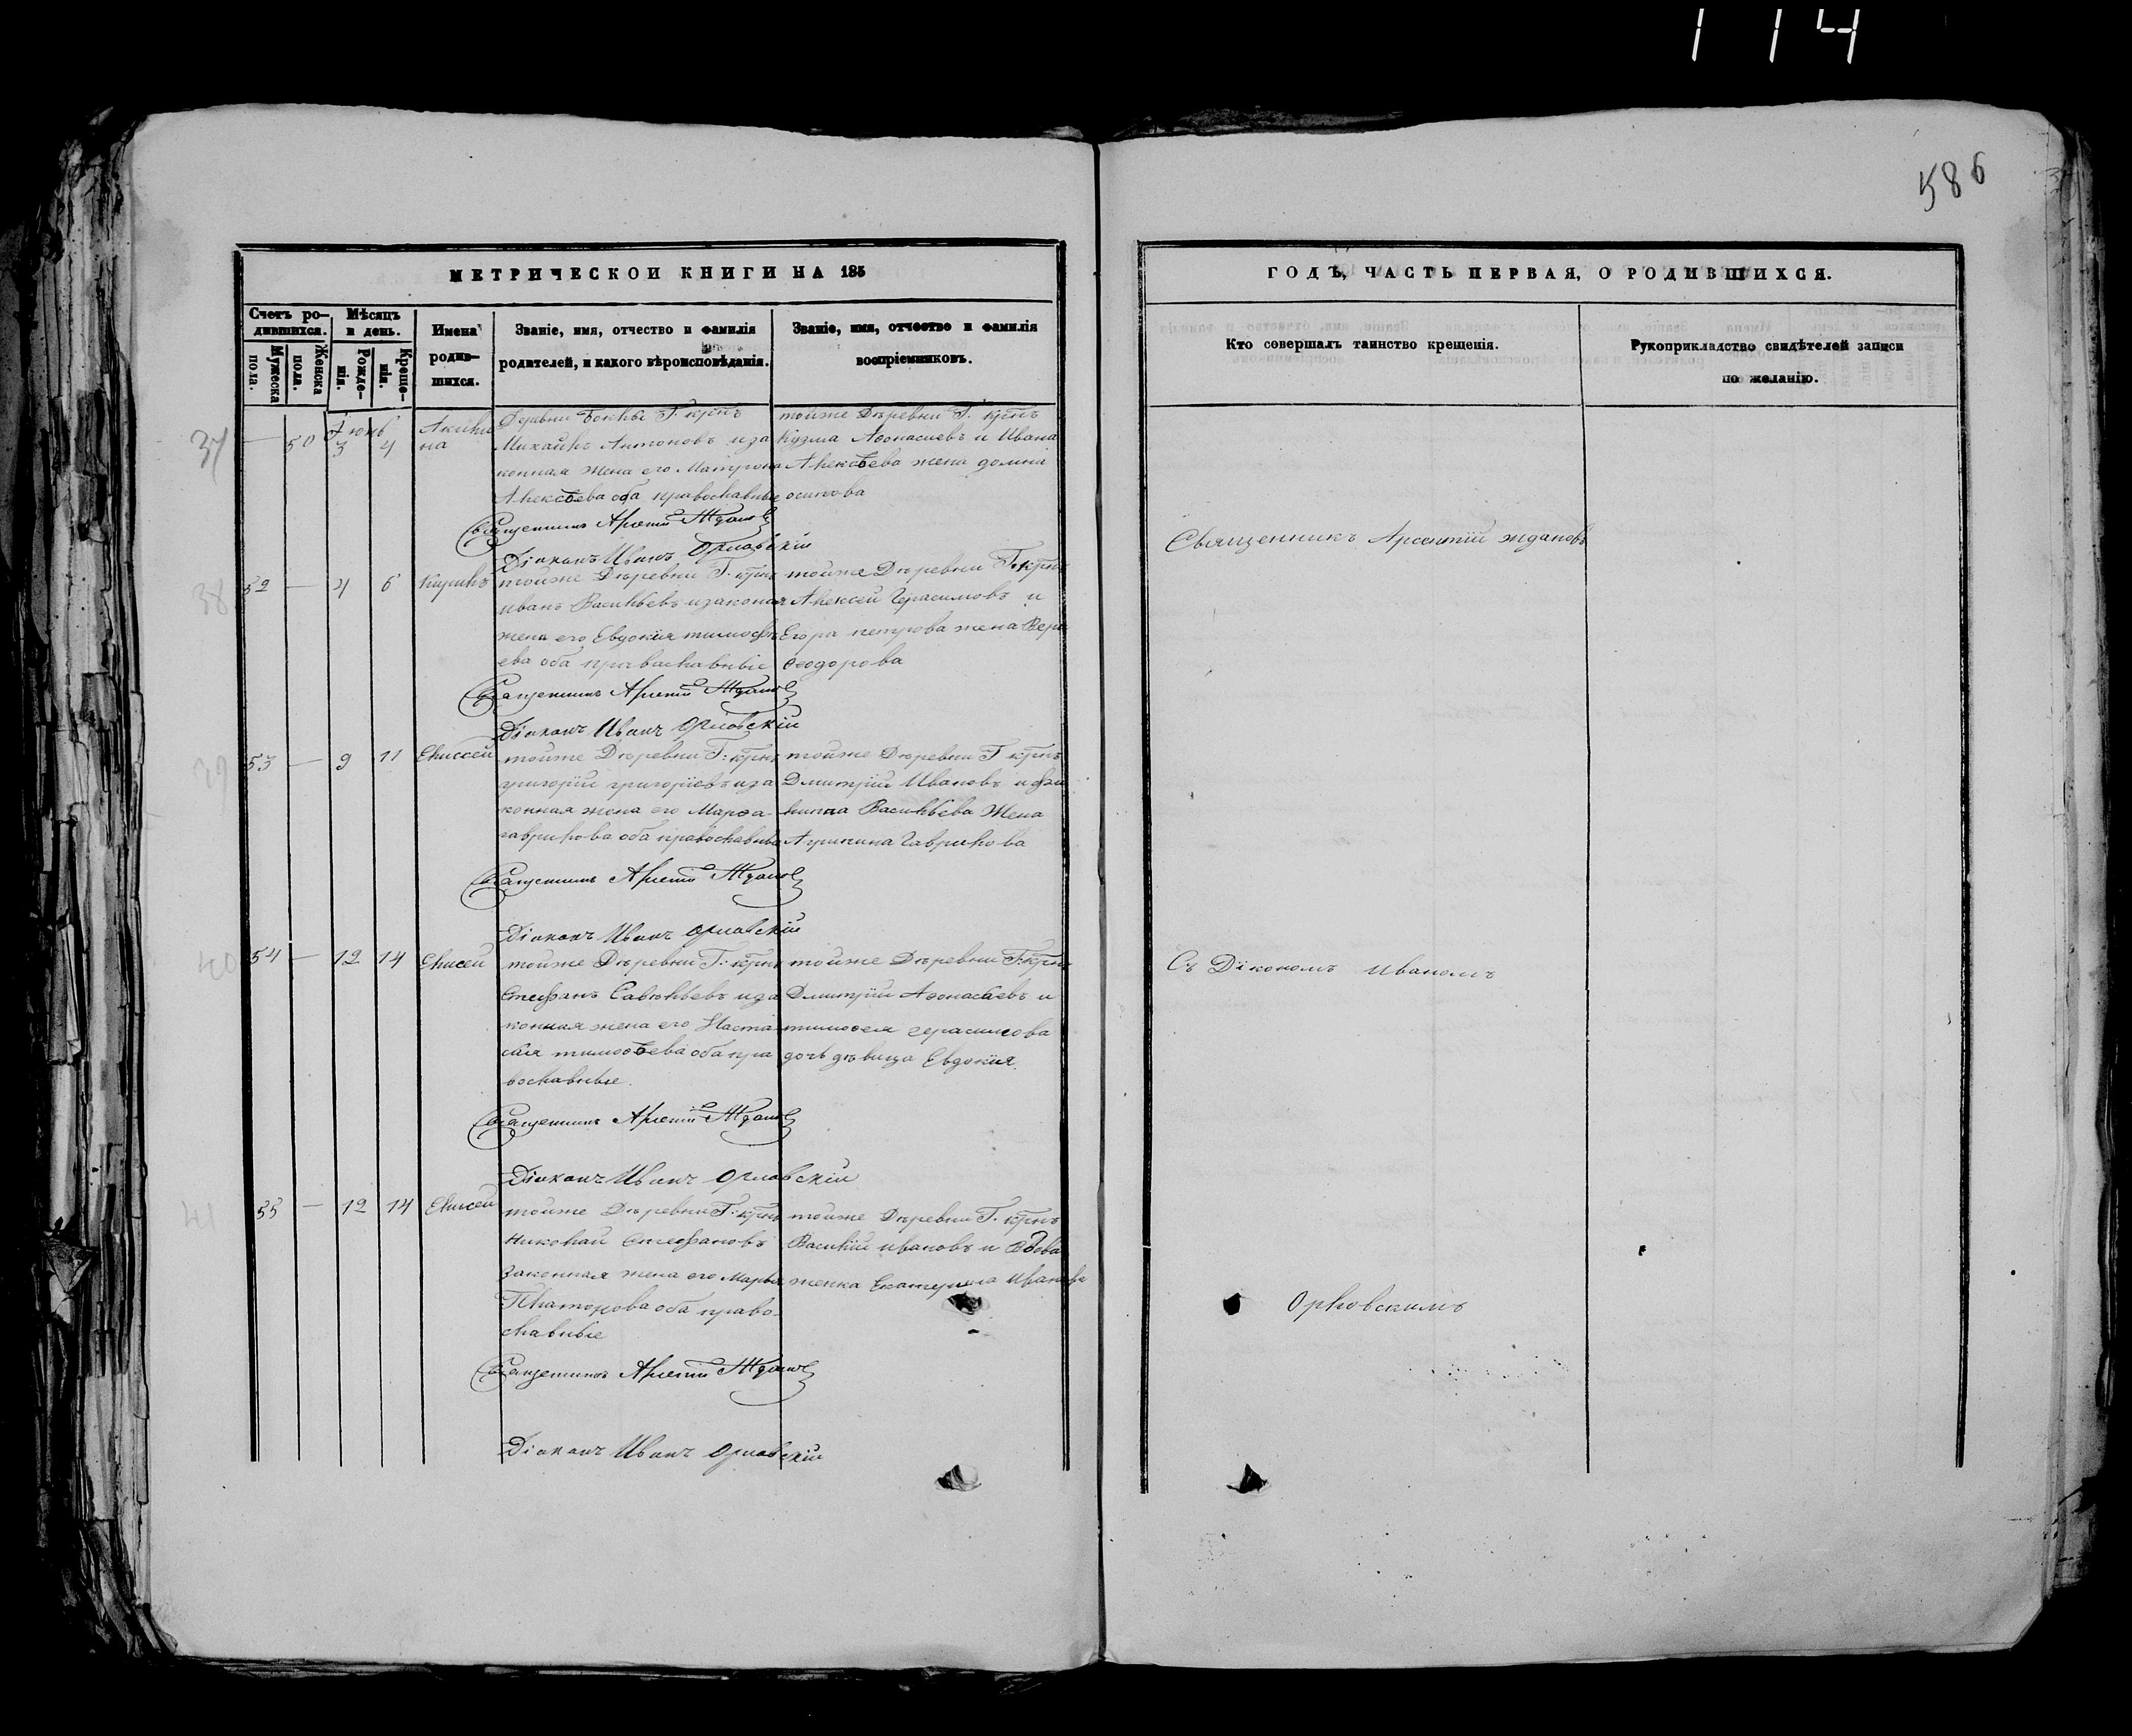 114
586
МЕТРИЧЕСКОЙ КНИГИ НА 185
Счетъ ро-
дившихся.
Мужеска
пола.
Женска
пола.
Мѣсяцъ
и день.
Рожде-
нія.
Креще-
нія.
Имена
родив-
шихся.
Званіе, имя, отчество и фамилія
родителей, и какого вѣроисповѣданія.
Званіе, имя, отчество и фамилія
воспріемниковъ.
ГОДЪ, ЧАСТЬ ПЕРВАЯ, О РОДИВШИХСЯ.
Кто совершалъ таинство крещенія.
Рукоприкладство свидѣтелей записи
по желанію.
37
— 50 3 4
Акили
на
Деревни Г. крнъ
Михайлъ Антоновъ и за
конная жена его Матрона
Алексѣева оба православные
тойже Дѣревни Г. крнъ
Кузма Афонасиевъ и Ивана
Алексѣева жена домна
осипова
Священникъ Арсентій Ждановъ
Діаконъ Иванъ Орловскій
38
52 — 4 6
Кирилъ
тойже Дѣревни Г. крнъ
иванъ Васильевъ и законая
жена его Евдокия тимофѣ
ева оба праваславныіе
тойже Дѣревни Г. крнъ
Алексей Герасимовъ и
Егора петрова жена Вера
феодорова
Священникъ Арсентій Ждановъ
Діаконъ Иванъ Орловскій
39
53 — 9 11
Елиссей
тойже Дѣревни Г: крнъ
григорій григоріевъ и за
конная жена его Марфа
гаврилова оба православные
тойже Дѣревни Г крнъ
Дмитрій Ивановъ и фи
липпа Васильева Жена
Агрипина Гаврилова
Священникъ Арсентій Ждановъ
Діаконъ Иванъ Орловскій
40
54 — 12 14
Елисей
тойже Дѣревни Г: крнъ
Стефанъ Савельевъ и за
конная жена его Наста
сия тимофѣева оба пра
вославные.
тойже Дѣревни Г: крнъ
Дмитрій Афонасьевъ и
тимофея герасимова
дочь дѣвица Евдокия.
Священникъ Арсентій Ждановъ
Діаконъ Иванъ Орловскій
41
55 — 12 14
Елисей
тойже Дѣревни Г: крнъ
Николай Стефановъ
Законная жена его Марья
Платонова оба право-
славные
тойже Дѣревни Г. крнъ
Василій ивановъ и вдова
женка Екатерина Иванова
Священникъ Арсентій Ждановъ
Діаконъ Иванъ Орловскій
Священникъ Арсентій ждановъ
Съ Дікономъ Иваномъ
Орловскимъ